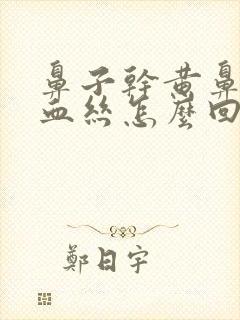 鼻子幹黃鼻
血絲怎麼回
鄭日宇